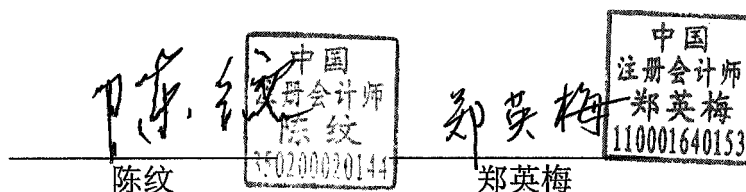 陈纹
中国
注册会计师
陈纹
350200020144
郑英梅
中国
注册会计师
郑英梅
110001640153
陈纹
郑英梅